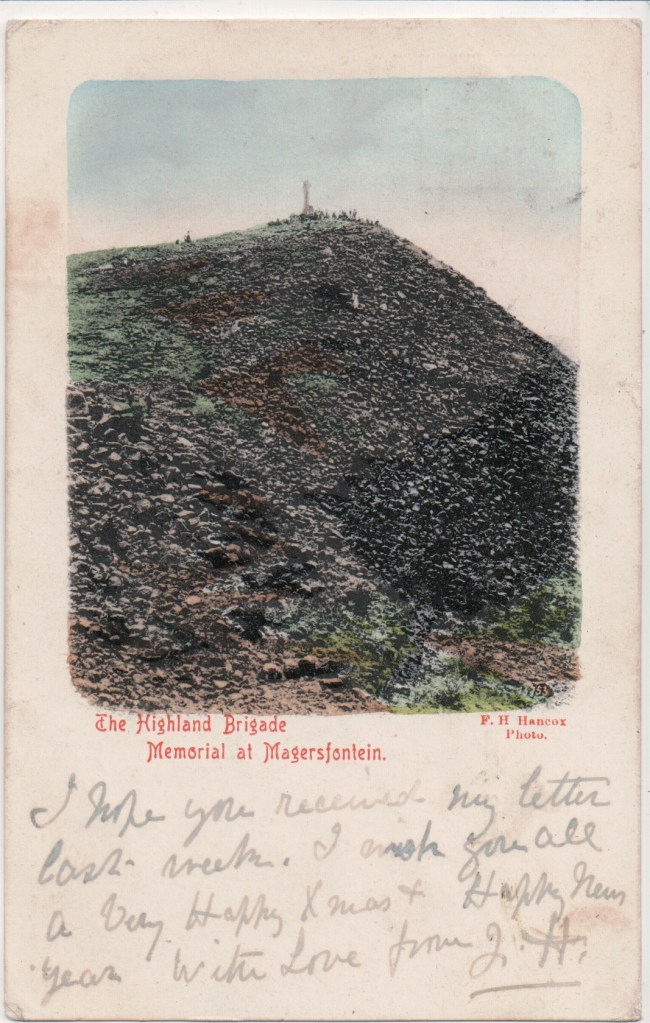 The Highland Brigade
Memorial at Magersfontein.
F. H Hancox
Photo.
I hope you received my letter
last week. I wish you all
a Very Happy Xmas + Happy New
year With Love from J. H.